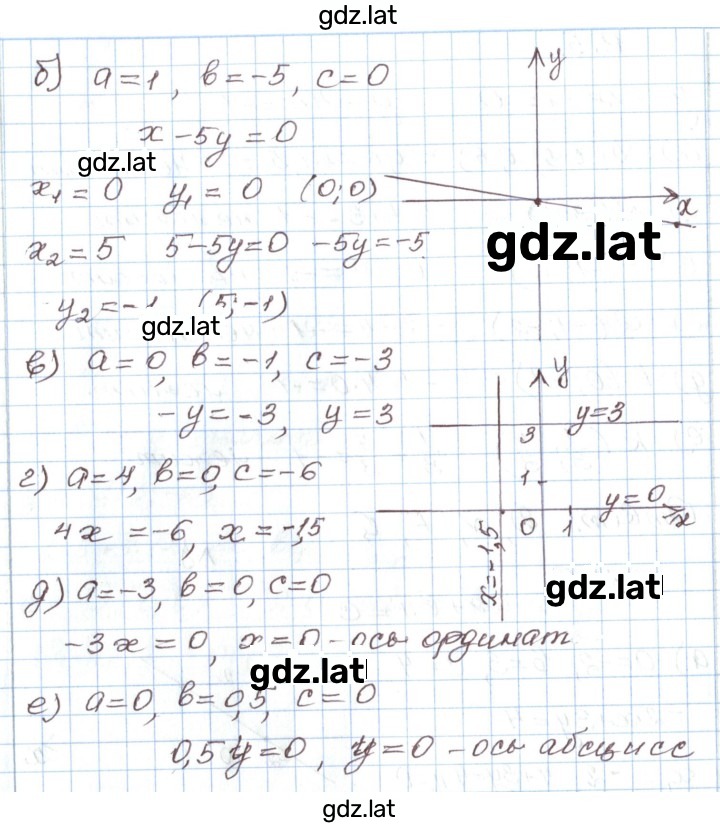 gdz.lat
б) a=1, b=-5, c=0
x-5y=0
gdz.lat
x₁=0 y₁=0 (0;0)
x₂=5 5-5y=0 -5y=-5
y₂=-1 (5;-1)
gdz.lat
в) a=0, b=-1, c=-3
-y=-3, y=3
г) a=4, b=0, c=-6
4x=-6, x=-1,5
д) a=-3, b=0, c=0
-3x=0, x=0 - осы ординат
gdz.lat
е) a=0, b=0,5, c=0
0,5y=0, y=0 - осы абсцисс
y
x
gdz.lat
y
y=3
3
1
y=0
x
0 1
x=-1,5
gdz.lat
gdz.lat